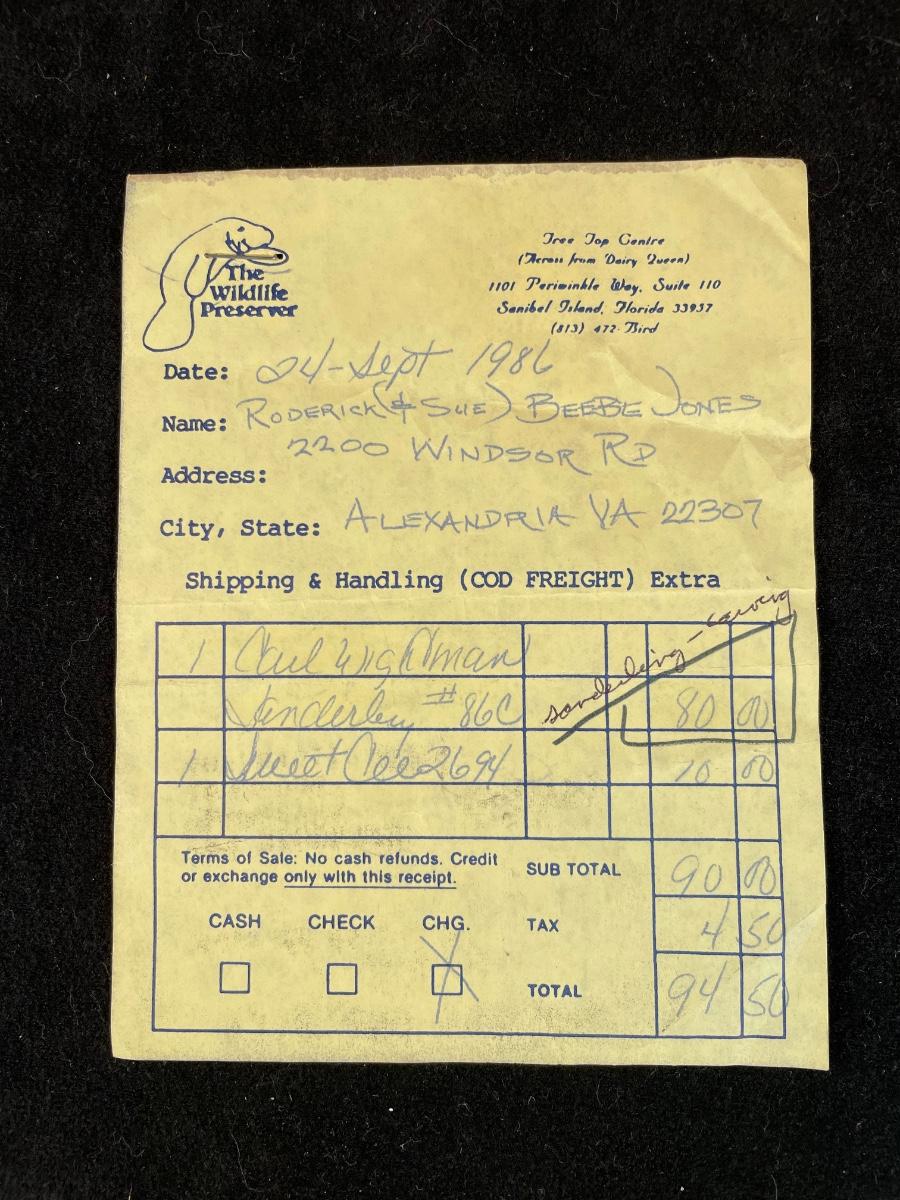 The
Wildlife
Preserver
Tree Top Centre
(Across from Dairy Queen)
1101 Periwinkle Way, Suite 110
Sanibel Island, Florida 33957
(813) 472-Bird
Date: 24-Sept 1986
Name: RODERICK (& SUE) BEEBE JONES
2200 WINDSOR RD
Address:
City, State: ALEXANDRIA VA 22307
Shipping & Handling (COD FREIGHT) Extra
sanderling-carving
1 Carl Wightman
Sanderling #86C 80 00
1 Sweet 2694 10 00
Terms of Sale: No cash refunds. Credit
or exchange only with this receipt.
SUB TOTAL 90 00
CASH CHECK CHG. X
TAX 4 50
TOTAL 94 50